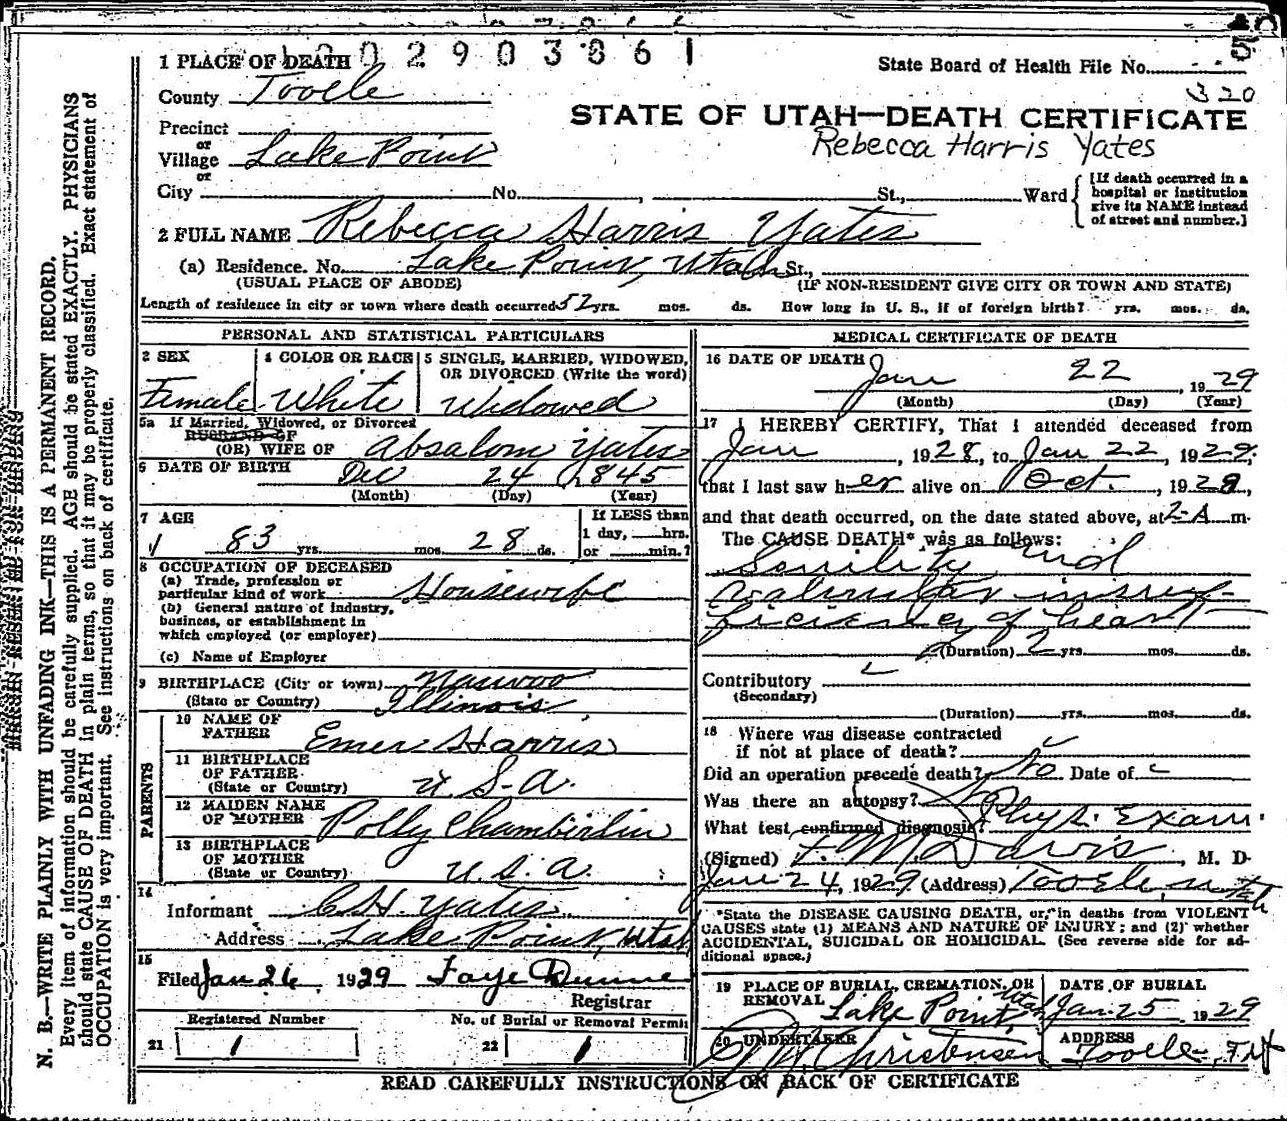 1 PLACE OF DEATH 002903861
State Board of Health File No.
County Tooele
320
STATE OF UTAH—DEATH CERTIFICATE
Precinct
or
Village Lake Point
or
Rebecca Harris Yates
City No. , St., Ward
[If death occurred in a
hospital or institution
give its NAME instead
of street and number.]
2 FULL NAME Rebecca Harris Yates
(a) Residence. No. Lake Point, Utah St.,
(USUAL PLACE OF ABODE) (IF NON-RESIDENT GIVE CITY OR TOWN AND STATE)
Length of residence in city or town where death occurred 52 yrs. mos. ds. How long in U. S., if of foreign birth? yrs. mos. ds.
PERSONAL AND STATISTICAL PARTICULARS
3 SEX
Female
4 COLOR OR RACE
White
5 SINGLE, MARRIED, WIDOWED,
OR DIVORCED (Write the word)
Widowed
5a If Married, Widowed, or Divorced
HUSBAND OF
(OR) WIFE OF Absalom Yates
6 DATE OF BIRTH Dec 24 1845
(Month) (Day) (Year)
7 AGE
83 yrs. mos. 28 ds.
If LESS than
1 day, hrs.
or min.?
8 OCCUPATION OF DECEASED
(a) Trade, profession or
particular kind of work Housewife
(b) General nature of industry,
business, or establishment in
which employed (or employer)
(c) Name of Employer
9 BIRTHPLACE (City or town) Nauvoo
(State or Country) Illinois
PARENTS
10 NAME OF
FATHER Emer Harris
11 BIRTHPLACE
OF FATHER
(State or Country) U. S. A.
12 MAIDEN NAME
OF MOTHER Polly Chamberlin
13 BIRTHPLACE
OF MOTHER
(State or Country) U. S. A.
14
Informant C. H. Yates
Address Lake Point, Utah
15
Filed Jan 26 1929 Faye Dunne
Registrar
Registered Number No. of Burial or Removal Permit
21 1 22 1
MEDICAL CERTIFICATE OF DEATH
16 DATE OF DEATH
Jan 22, 1929
(Month) (Day) (Year)
17 I HEREBY CERTIFY, That I attended deceased from
Jan, 1928, to Jan 22, 1929,
that I last saw her alive on Oct., 1928,
and that death occurred, on the date stated above, at 2 A m.
The CAUSE DEATH* was as follows:
Senility and
valvular insuf-
ficiency of heart
(Duration) 2 yrs. mos. ds.
Contributory
(Secondary)
(Duration) yrs. mos. ds.
18 Where was disease contracted
if not at place of death?
Did an operation precede death? No Date of
Was there an autopsy?
What test confirmed diagnosis? Phys. Exam.
(Signed) F. M. Davis, M. D.
Jan 24, 1929 (Address) Tooele, Utah
*State the DISEASE CAUSING DEATH, or, in deaths from VIOLENT
CAUSES state (1) MEANS AND NATURE OF INJURY; and (2) whether
ACCIDENTAL, SUICIDAL OR HOMICIDAL. (See reverse side for ad-
ditional space.)
19 PLACE OF BURIAL, CREMATION, OR
REMOVAL Lake Point, Utah
DATE OF BURIAL
Jan. 25 1929
20 UNDERTAKER
Christensen
ADDRESS
Tooele
READ CAREFULLY INSTRUCTIONS ON BACK OF CERTIFICATE
MARGIN RESERVED FOR BINDING
N. B.—WRITE PLAINLY WITH UNFADING INK—THIS IS A PERMANENT RECORD.
Every item of information should be carefully supplied. AGE should be stated EXACTLY. PHYSICIANS
should state CAUSE OF DEATH in plain terms, so that it may be properly classified. Exact statement of
OCCUPATION is very important. See instructions on back of certificate.